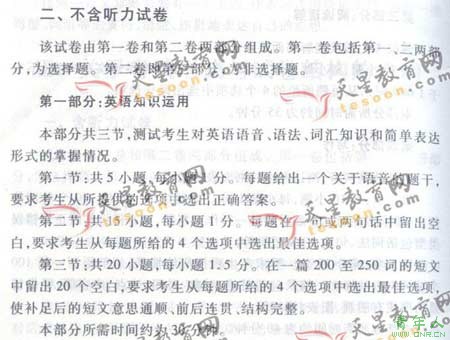 二、不含听力试卷
该试卷由第一卷和第二卷两部分组成。第一卷包括第一、二两部
分,为选择题。第二卷即第三部分,为非选择题。
第一部分:英语知识运用
本部分共三节,测试考生对英语语音、语法、词汇知识和简单表达
形式的掌握情况。
第一节:共5小题,每小题1分。每题给出一个关于语音的题干,
要求考生从所提供的选项中选出正确答案。
第二节:共15小题,每小题1分。每题在一句或两句话中留出空
白,要求考生从每题所给的4个选项中选出最佳选项。
第三节:共20小题,每小题1.5分。在一篇200至250词的短文
中留出20个空白,要求考生从每题所给的4个选项中选出最佳选项,
使补足后的短文意思通顺、前后连贯、结构完整。
本部分所需时间约为30分钟。
天星教育网
tesoon.com
天星教育网
tesoon.com
天星教育网
tesoon.com
天星教育网
青年人
CNR.CN